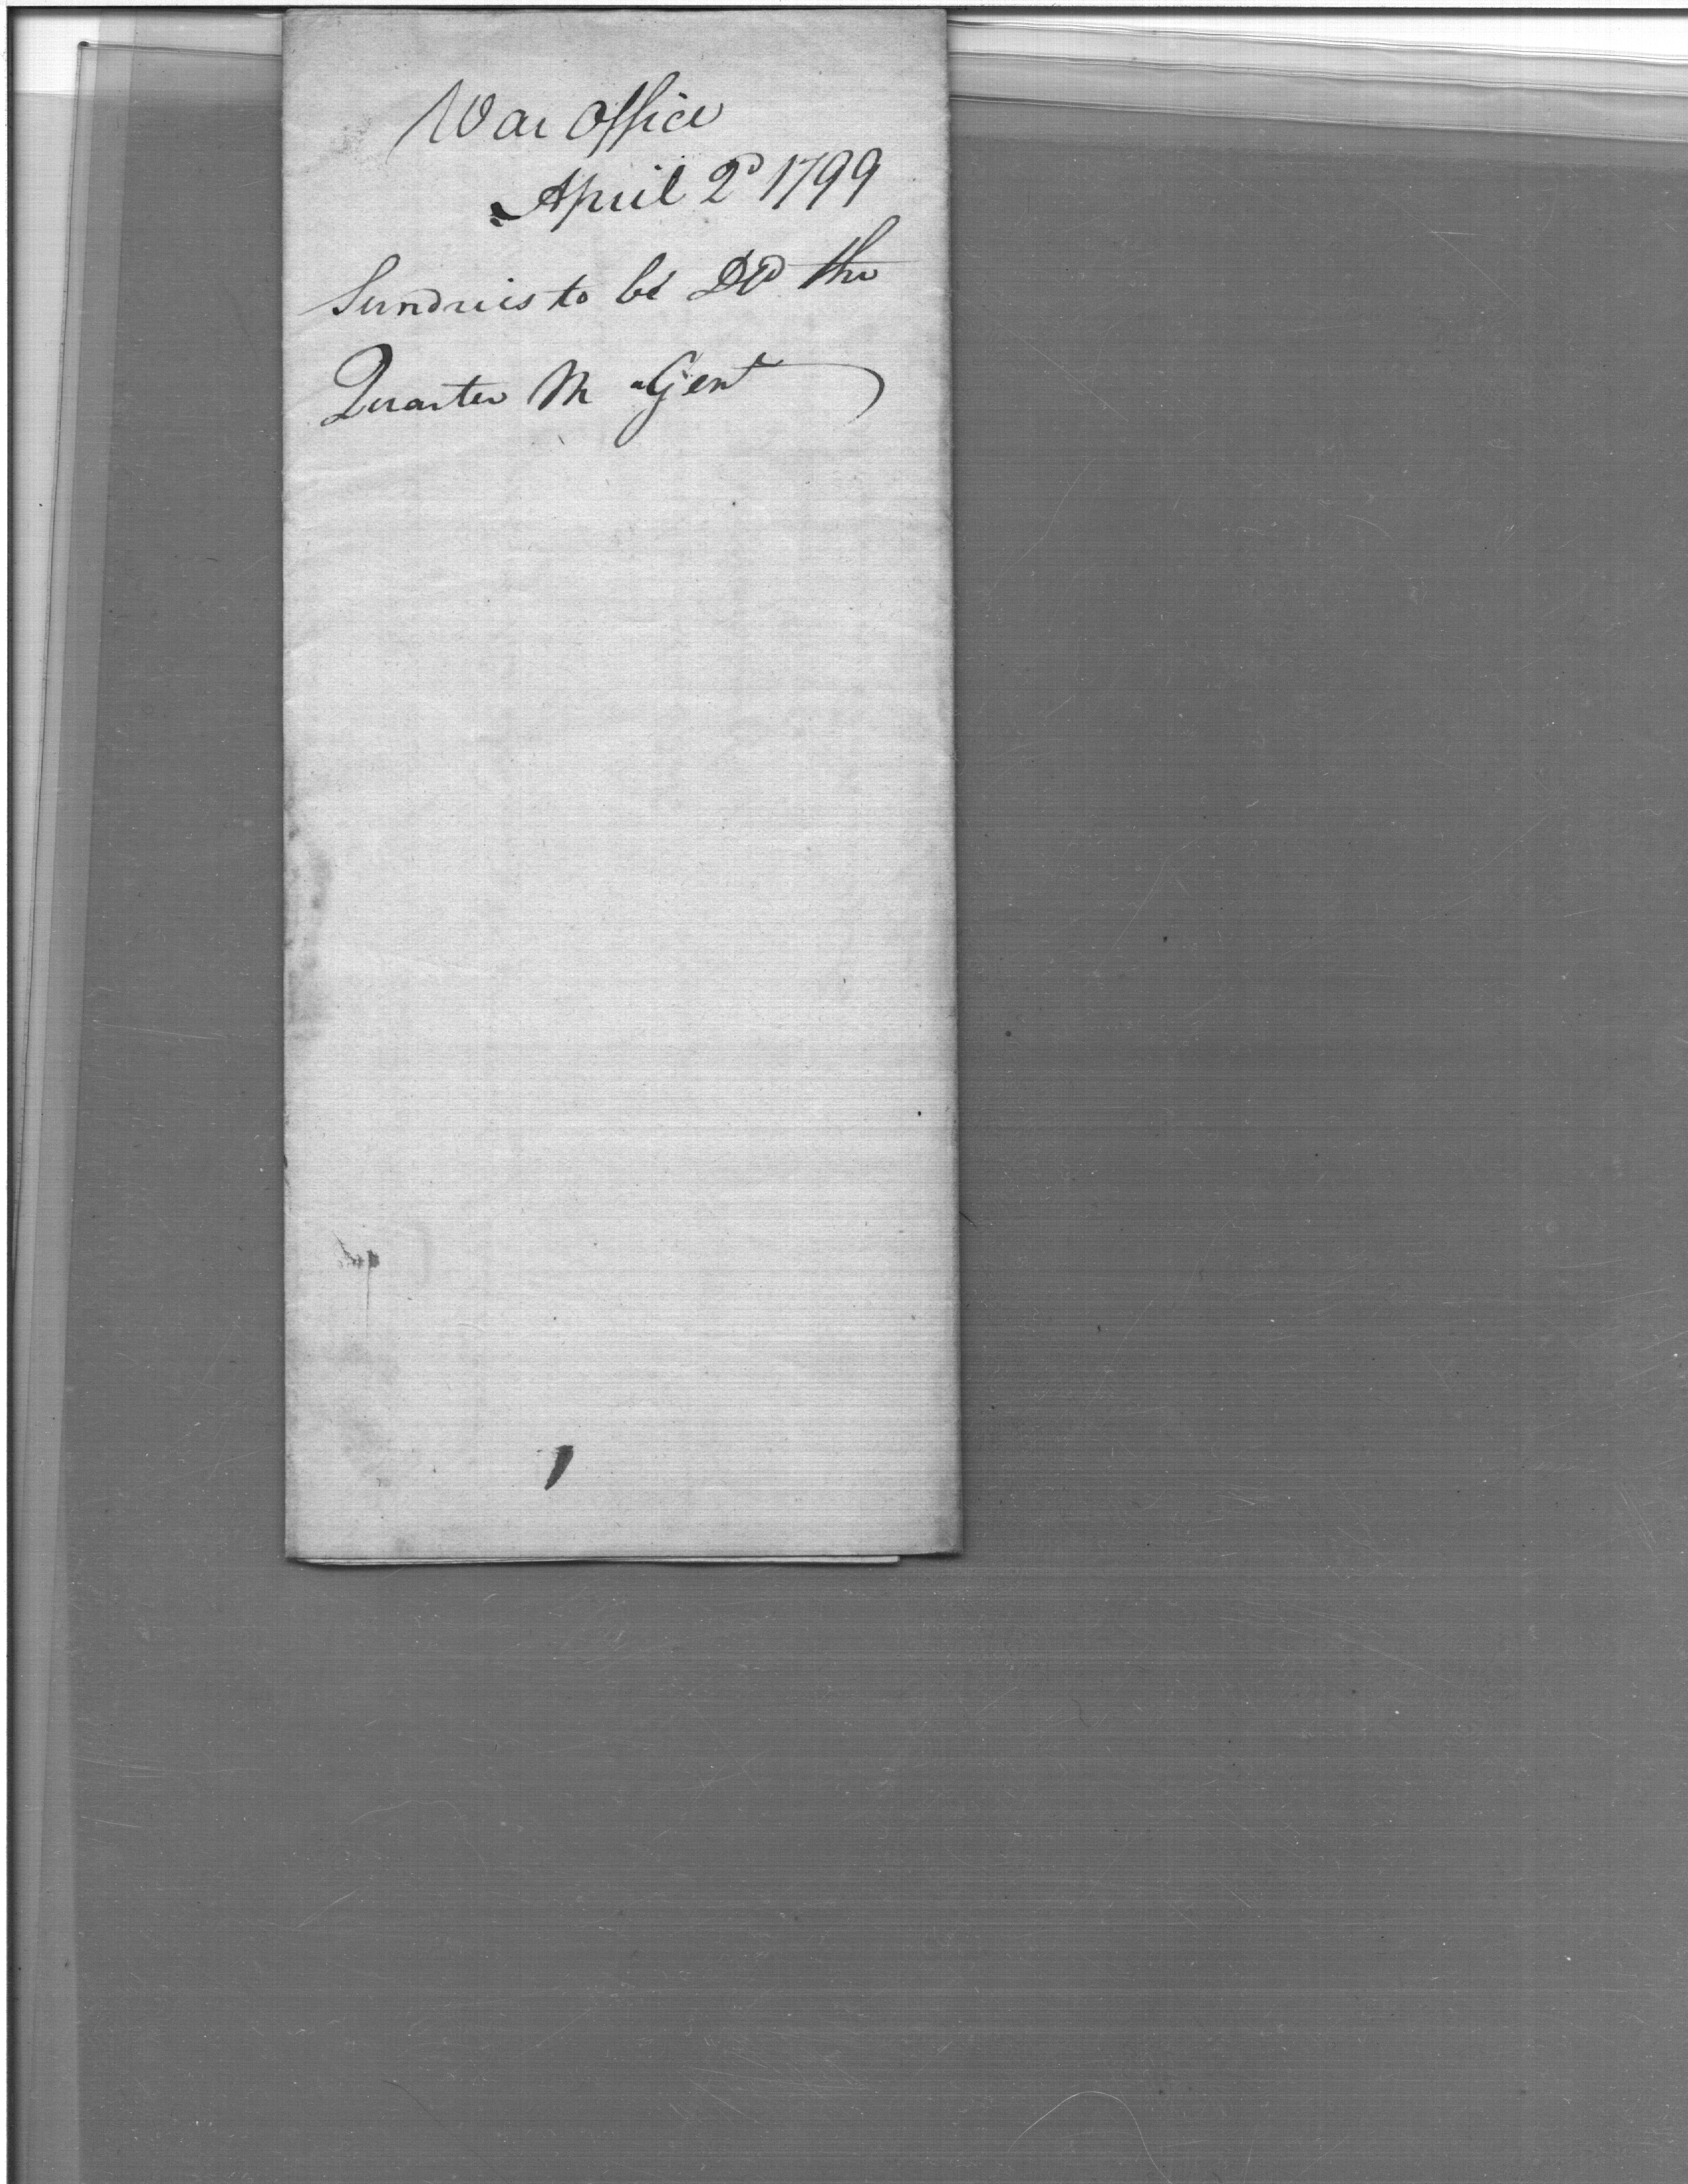 War Office
April 2d 1799
Sundries to be DD the
Quarter M Genl